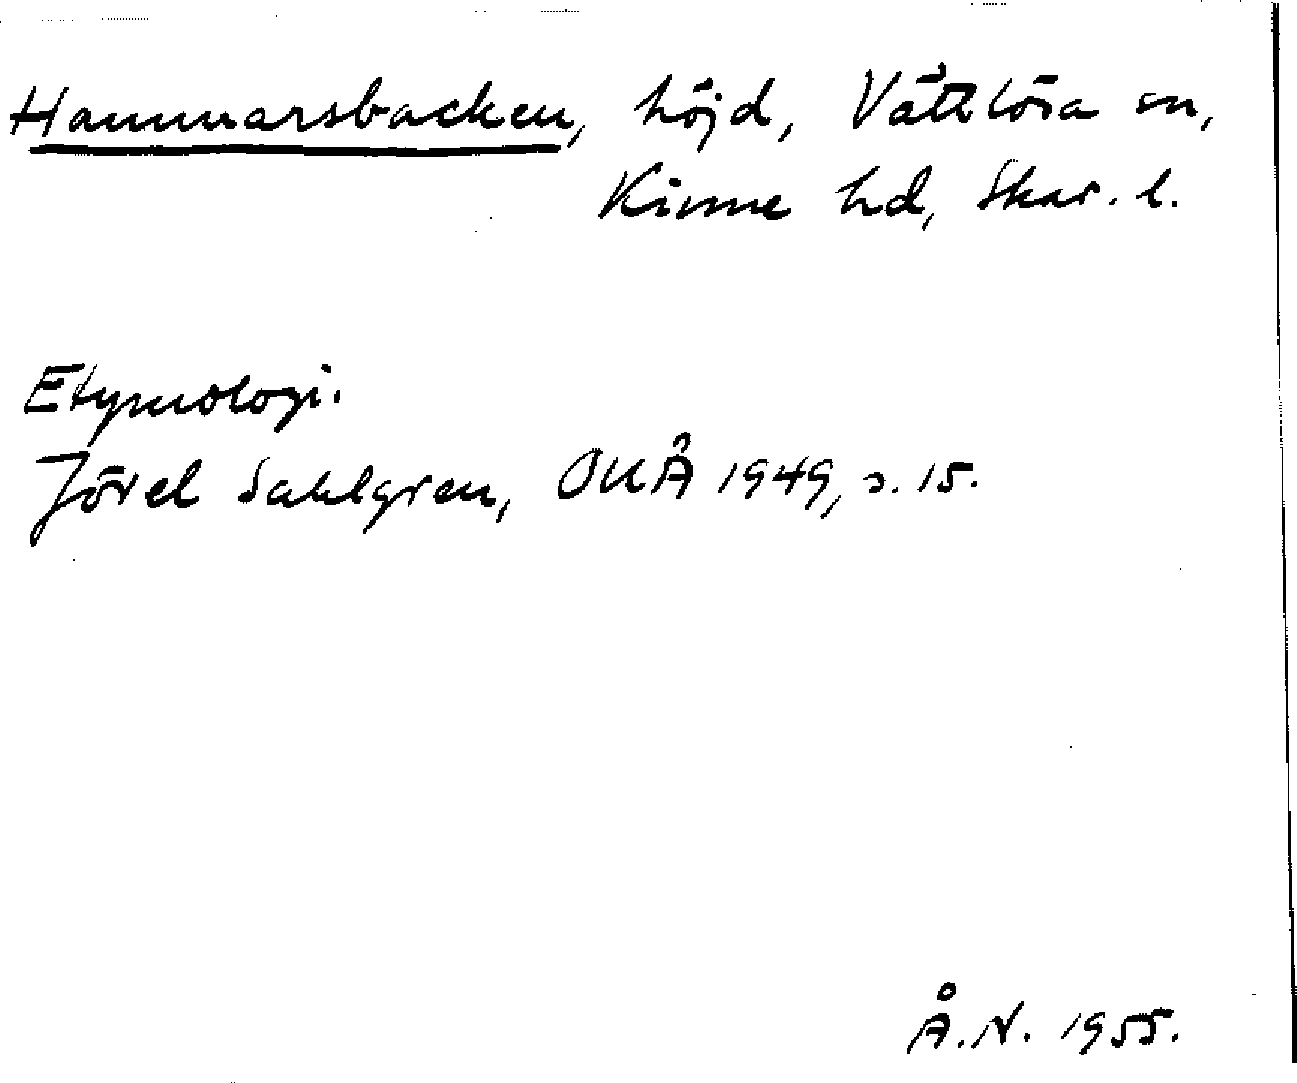 Hammarsbacken, höjd, Vättlösa sn,
Kinne hd, Skar. l.
Etymologi.
Jöran Sahlgren, ONÅ 1949, s. 15.
Å.N. 1955.